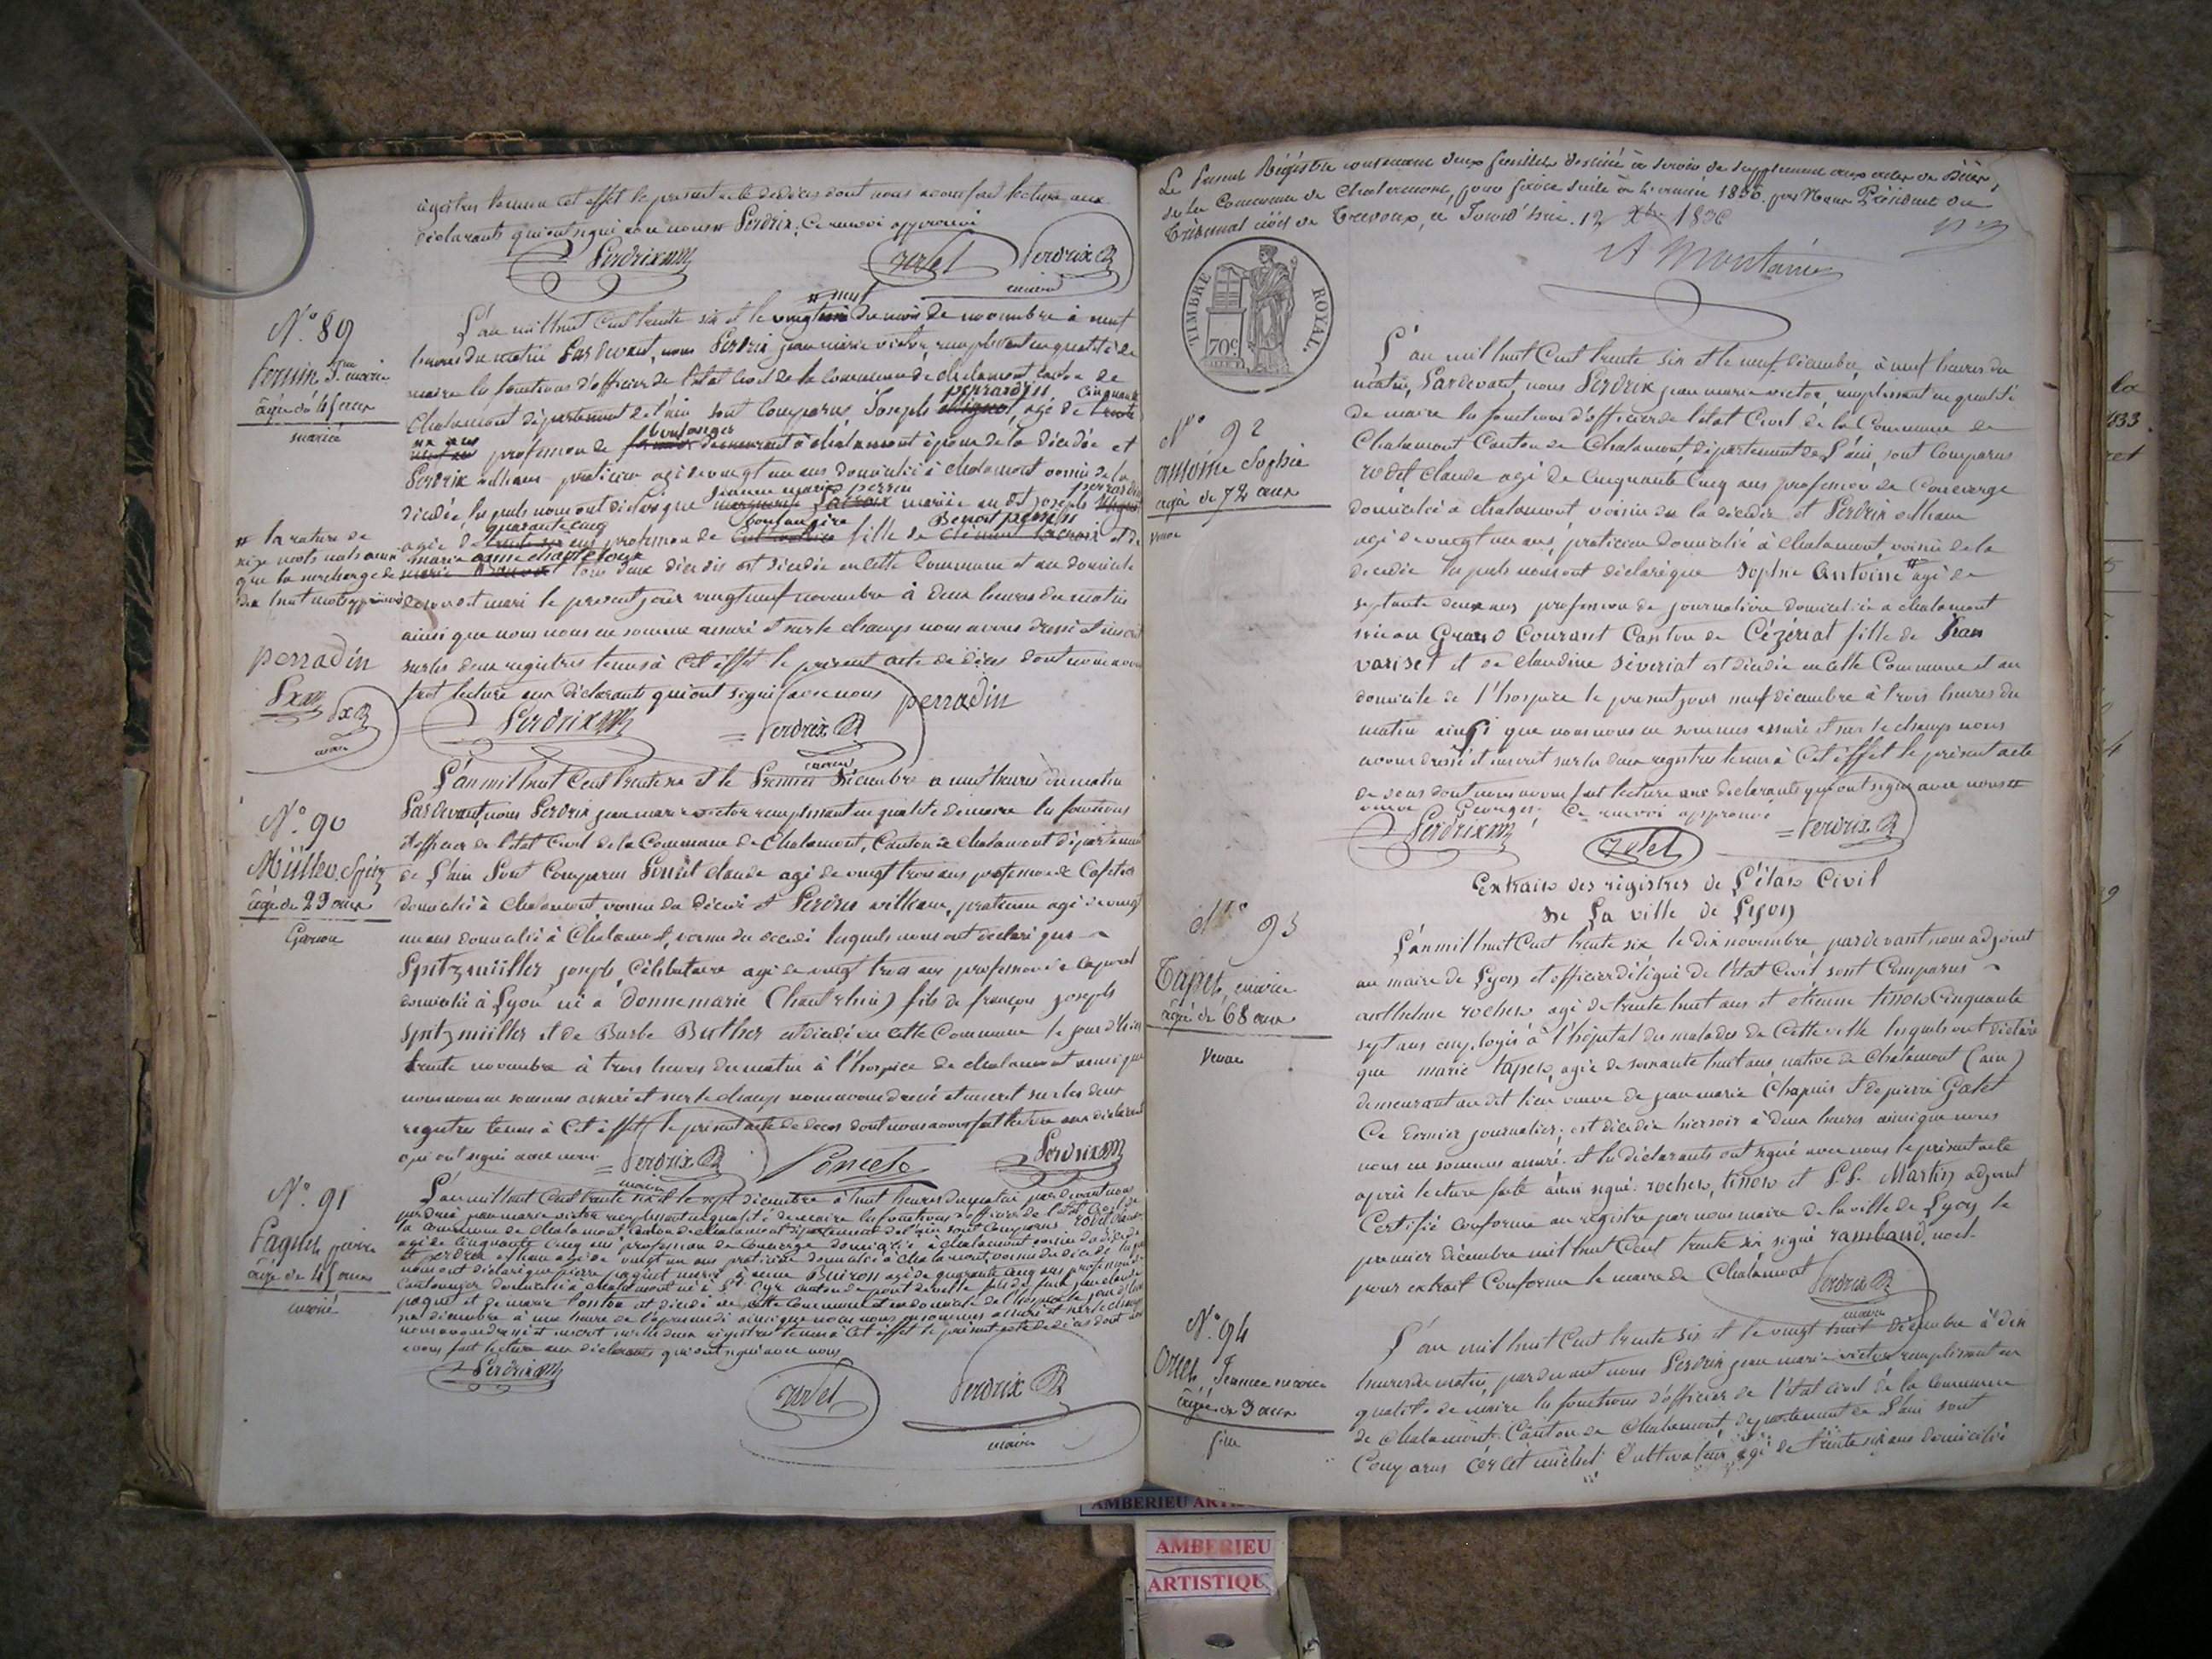 registres tenus à cet effet le présent acte de décès dont nous avons fait lecture aux
déclarants qui ont signé avec nous Perdrix. Ce renvoi approuvé
Perdrix
rodet
Perdrix
maire
N° 89
Perrin Jne marie
âgée de 45 ans
mariée
# neuf
L'an mil huit Cent trente six et le vingt du mois de novembre à neuf
heures du matin Pardevant nous Perdrix jean marie victor, remplissant en qualité de
maire les fonctions d'officier de l'état civil de la Commune de chalamont Canton de
perradin cinquante
Chalamont département de l'ain sont Comparus Joseph agé de
un ans boulanger
profession de demeurant à chalamont époux de la décédée et
Perdrix praticien agé de vingt un ans domicilié à chalamont voisin de la
jeanne marie perrin perradin
décédée, lesquels nous ont déclaré que mariée au dit joseph
quarante cinq boulangère Benoit perrin
agée de ans profession de fille de et de
marie anne
tous deux décédés est décédée en cette Commune et au domicile
de son dit mari le present jour vingt neuf novembre à deux heures du matin
ainsi que nous nous en sommes assuré et sur le champ nous avons dressé et inscrit
sur les deux registres tenus à cet effet le présent acte de décès dont nous avons
fait lecture aux déclarants qui ont signé avec nous perradin
# la rature de
mots nuls ainsi
que la surcharge de
dix huit mots approuvés
perradin
Perdrix
Perdrix
maire
N° 90
Müller Spitz
âgé de 23 ans
Garcon
L'an mil huit Cent trente six et le Premier Décembre à neuf heures du matin
Pardevant nous Perdrix jean marie victor remplissant en qualité de maire les fonctions
d'officier de l'état Civil de la Commune de Chalamont, Canton de Chalamont département
de L'ain Sont Comparus Poncet claude agé de vingt trois ans profession de Cafetier
domicilié à Chalamont, voisin du décédé et Perdrix praticien agé de vingt
un ans domicilié à Chalamont, voisin du décédé lesquels nous ont déclaré que
Spitzmüller joseph, Célibataire agé de vingt trois ans profession de caporal
domicilié à Lyon né à Donnemarie (haut rhin) fils de françois joseph
Spitzmüller et de Barbe Buther est décédé en cette Commune le jour d'hier
trente novembre à trois heures du matin à l'hospice de chalamont ainsi que
nous nous en sommes assuré et sur le champ nous avons dressé et inscrit sur les deux
registres tenus à Cet effet le présent acte de décès dont nous avons fait lecture aux déclarants
qui ont signé avec nous
Perdrix
maire
Poncet
Perdrix
N° 91
Paquet pierre
âgé de 45 ans
marié
L'an mil huit Cent trente six et le sept décembre à huit heures du matin pardevant nous
perdrix jean marie victor remplissant en qualité de maire les fonctions d'officier de l'état Civil de
la Commune de Chalamont Canton de Chalamont département de l'ain sont Comparus rodet claude
agé de Cinquante Cinq ans profession de Concierge domicilié à Chalamont voisin du décédé
et perdrix agé de vingt un ans praticien domicilié à Chalamont voisin du décédé lesquels
nous ont déclaré que pierre paquet marié à anne Buiron agé de quarante cinq ans profession de
Cantonnier domicilié à Chalamont né à St Cyr Canton de pont de velle fils de
paquet et de marie est décédé en cette Commune et au domicile de l'hospice le jour d'hier
six décembre à une heure de l'après midi ainsi que nous nous en sommes assuré et sur le champ
nous avons dressé et inscrit sur les deux registres tenus à cet effet le présent acte de décès dont nous
avons fait lecture aux déclarants qui ont signé avec nous
Perdrix
rodet
Perdrix
maire
Le Présent Régistre contenant deux feuilles destiné à servir de supplément aux actes de Décès,
de la Commune de Chalamont, pour faire suite à l'année 1836. par Nous Président du
Tribunal civil de Trevoux, ce Jourd'hui 12 Xbre 1836
TIMBRE ROYAL.
70c
N° 92
Antoine Sophie
âgée de 72 ans
veuve
L'an mil huit Cent trente six et le neuf décembre, à neuf heures du
matin, Pardevant nous Perdrix jean marie victor, remplissant en qualité
de maire les fonctions d'officier de l'état Civil de la Commune de
Chalamont Canton de Chalamont département de L'ain, sont Comparus
rodet claude agé de Cinquante Cinq ans profession de Concierge
domicilié à chalamont voisin de la décédée et Perdrix
agé de vingt un ans, praticien domicilié à chalamont, voisin de la
décédée lesquels nous ont déclaré que Sophie Antoine # agée de
septante deux ans profession de journalière domiciliée à chalamont
née au Grand Courant Canton de Cézériat fille de
variset et de claudine séveriat est décédée en cette Commune et au
domicile de l'hospice le présent jour neuf décembre à trois heures du
matin ainsi que nous nous en sommes assuré et sur le champ nous
avons dressé et inscrit sur les deux registres tenus à Cet effet le présent acte
de décès dont nous avons fait lecture aux déclarants qui ont signé avec nous #
veuve Georges; Ce renvoi approuvé
Perdrix
rodet
Perdrix
N° 93
Tapet, marie
âgée de 68 ans
Veuve
Extrait des registres de L'état Civil
de La ville de Lyon
L'an mil huit Cent trente six le dix novembre, pardevant nous adjoint
au maire de Lyon et officier délégué de l'état Civil sont Comparus
anthelme rochet agé de trente huit ans et étienne tissot Cinquante
sept ans employés à l'hôpital des malades de Cette ville lesquels ont déclaré
que marie tapet, agée de soixante huit ans, native de Chalamont (ain)
demeurant au dit lieu veuve de jean marie Chapuis et de pierre Galet
Ce dernier journalier; est décédée hier soir à deux heures ainsi que nous
nous en sommes assuré. et les déclarants ont signé avec nous le présent acte
après lecture faite ainsi signé. rochet, tissot et Martin adjoint
Certifié conforme au registre par nous maire de la ville de Lyon le
premier décembre mil huit Cent trente six, signé rambaud,
pour extrait Conforme le maire de Chalamont
Perdrix
maire
N° 94
Jeanne marie
âgée de 3 ans
fille
L'an mil huit Cent trente six et le vingt huit décembre à dix
heures du matin, pardevant nous Perdrix jean marie victor remplissant en
qualité de maire les fonctions d'officier de l'état civil de la Commune
de Chalamont. Canton de Chalamont, département de L'ain sont
Comparus michel Cultivateur, agé de trente six ans domicilié
AMBERIEU
AMBERIEU
ARTISTIQUE